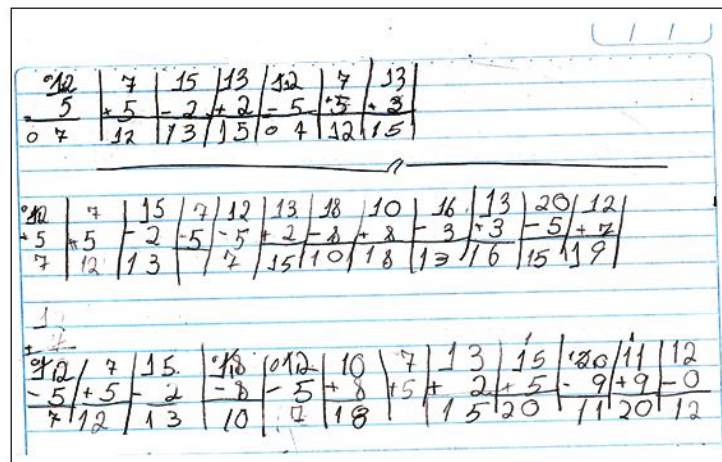 / /
12 | 7 | 15 | 13 | 12 | 7 | 13
- 5 | + 5 | - 2 | + 2 | - 5 | + 5 | + 3
0 7 | 12 | 13 | 15 | 0 7 | 12 | 15
12 | 7 | 15 | 7 | 12 | 13 | 18 | 10 | 16 | 13 | 20 | 12
+ 5 | + 5 | - 2 | - 5 | - 5 | + 2 | - 8 | + 8 | - 3 | + 3 | - 5 | + 7
7 | 12 | 13 | | 7 | 15 | 10 | 18 | 13 | 16 | 15 | 19
12 | 7 | 15 | 18 | 12 | 10 | 7 | 13 | 15 | 20 | 11 | 12
- 5 | + 5 | - 2 | - 8 | - 5 | + 8 | + 5 | + 2 | + 5 | - 9 | + 9 | - 0
7 | 12 | 13 | 10 | 7 | 18 | | 15 | 20 | 11 | 20 | 12